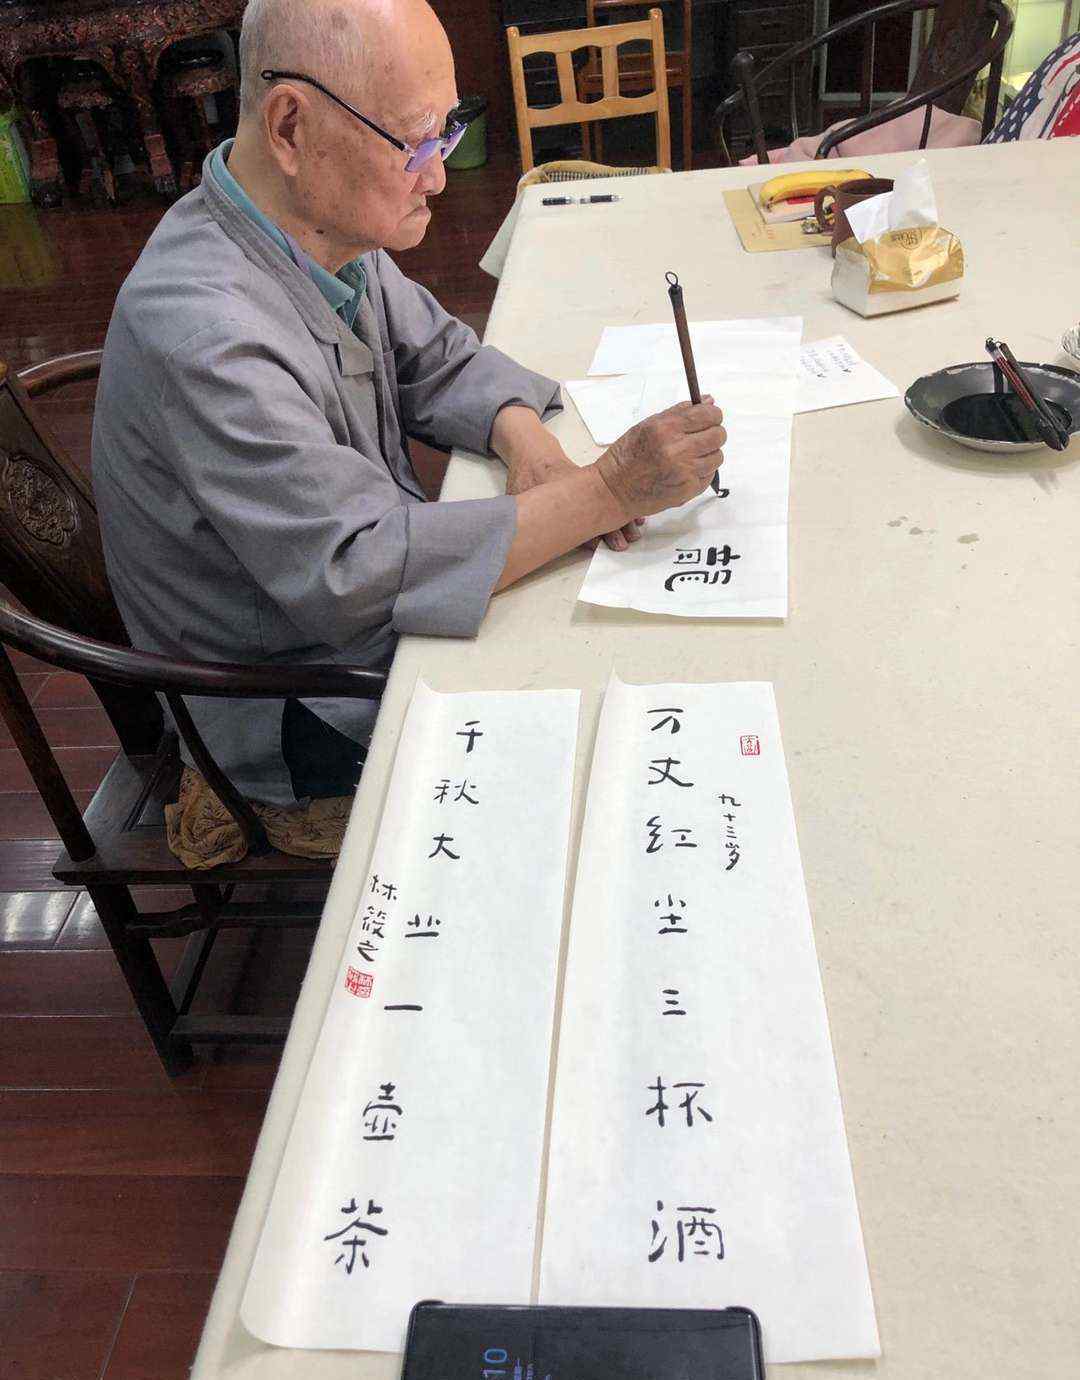 九十三岁
万丈红尘三杯酒
千秋大业一壶茶
林筱之
龍
10